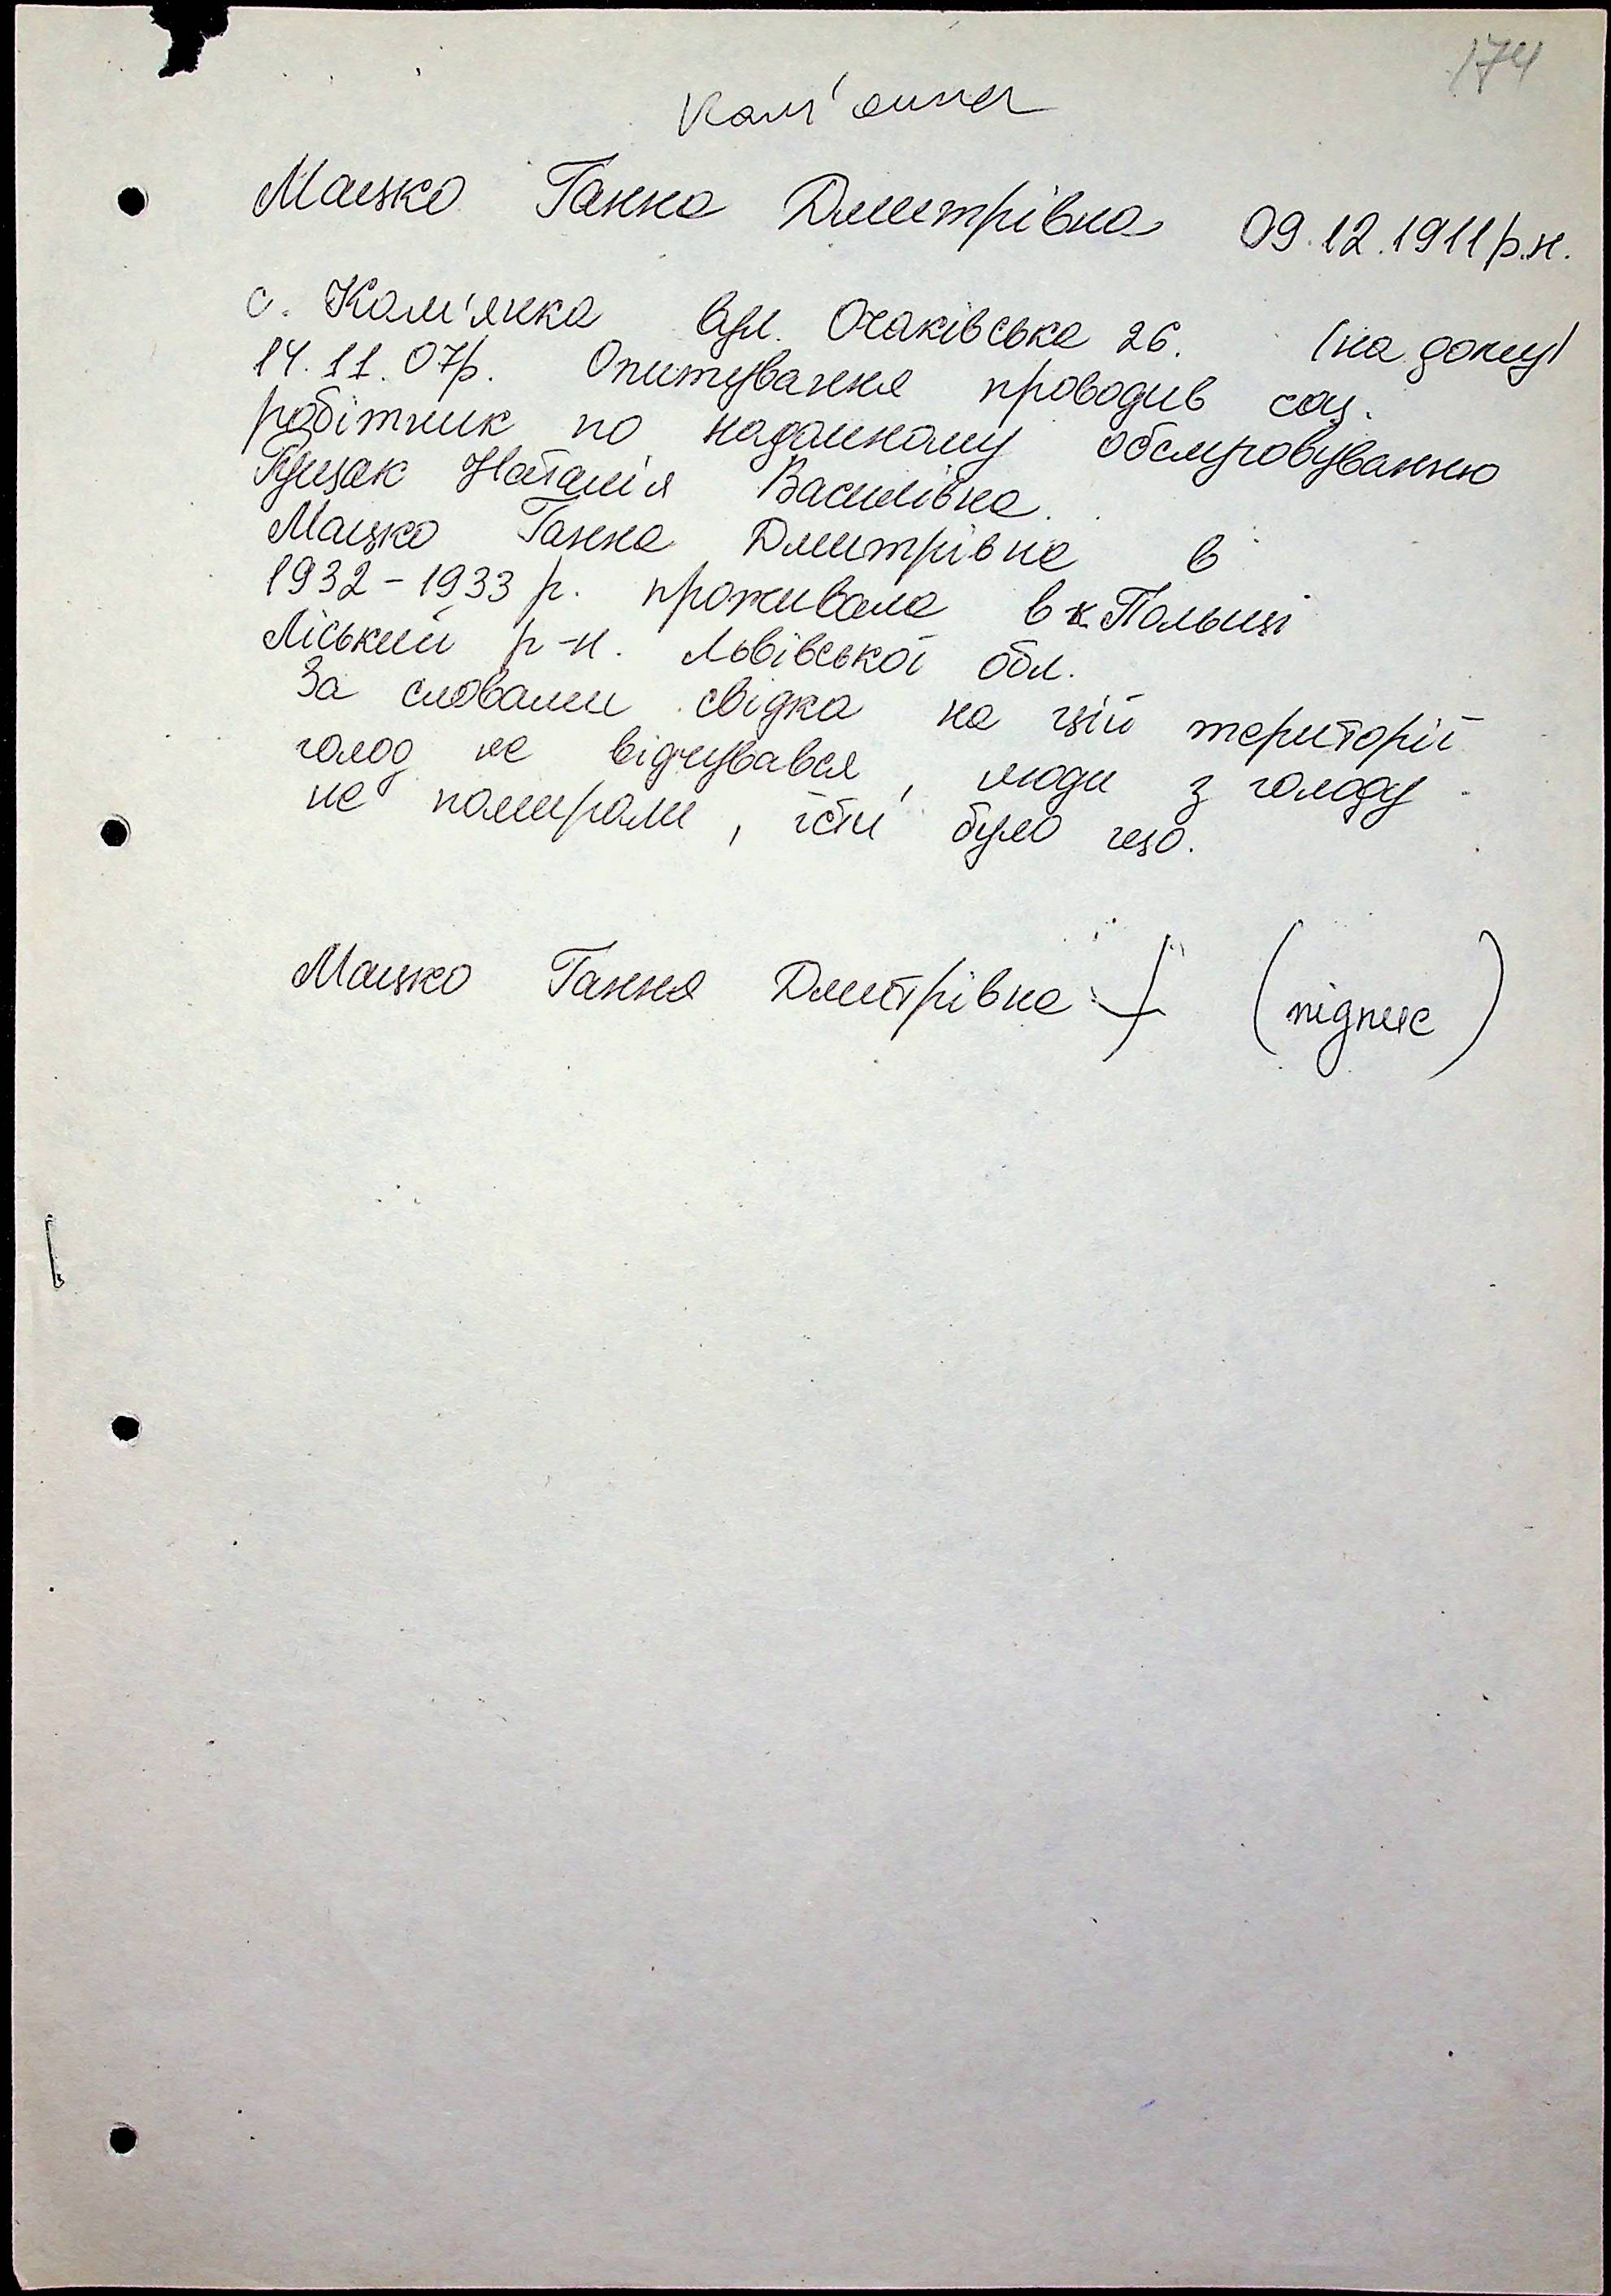 174
Кам'янка
Мацко Ганна Дмитрівна 09.12.1911 р.н.
с. Кам'янка вул. Очаківська 26. (на дому)
14.11.07р. Опитування проводив соц.
робітник по надомному обслуговуванню
Гуцак Наталія Василівна.
Мацко Ганна Дмитрівна в
1932-1933 р. проживала в Польщі
Ліський р-н. Львівської обл.
За словами свідка на цій території
голод не відчувався, люди з голоду
не помирали, їсти було що.
Мацко Ганна Дмитрівна (підпис)